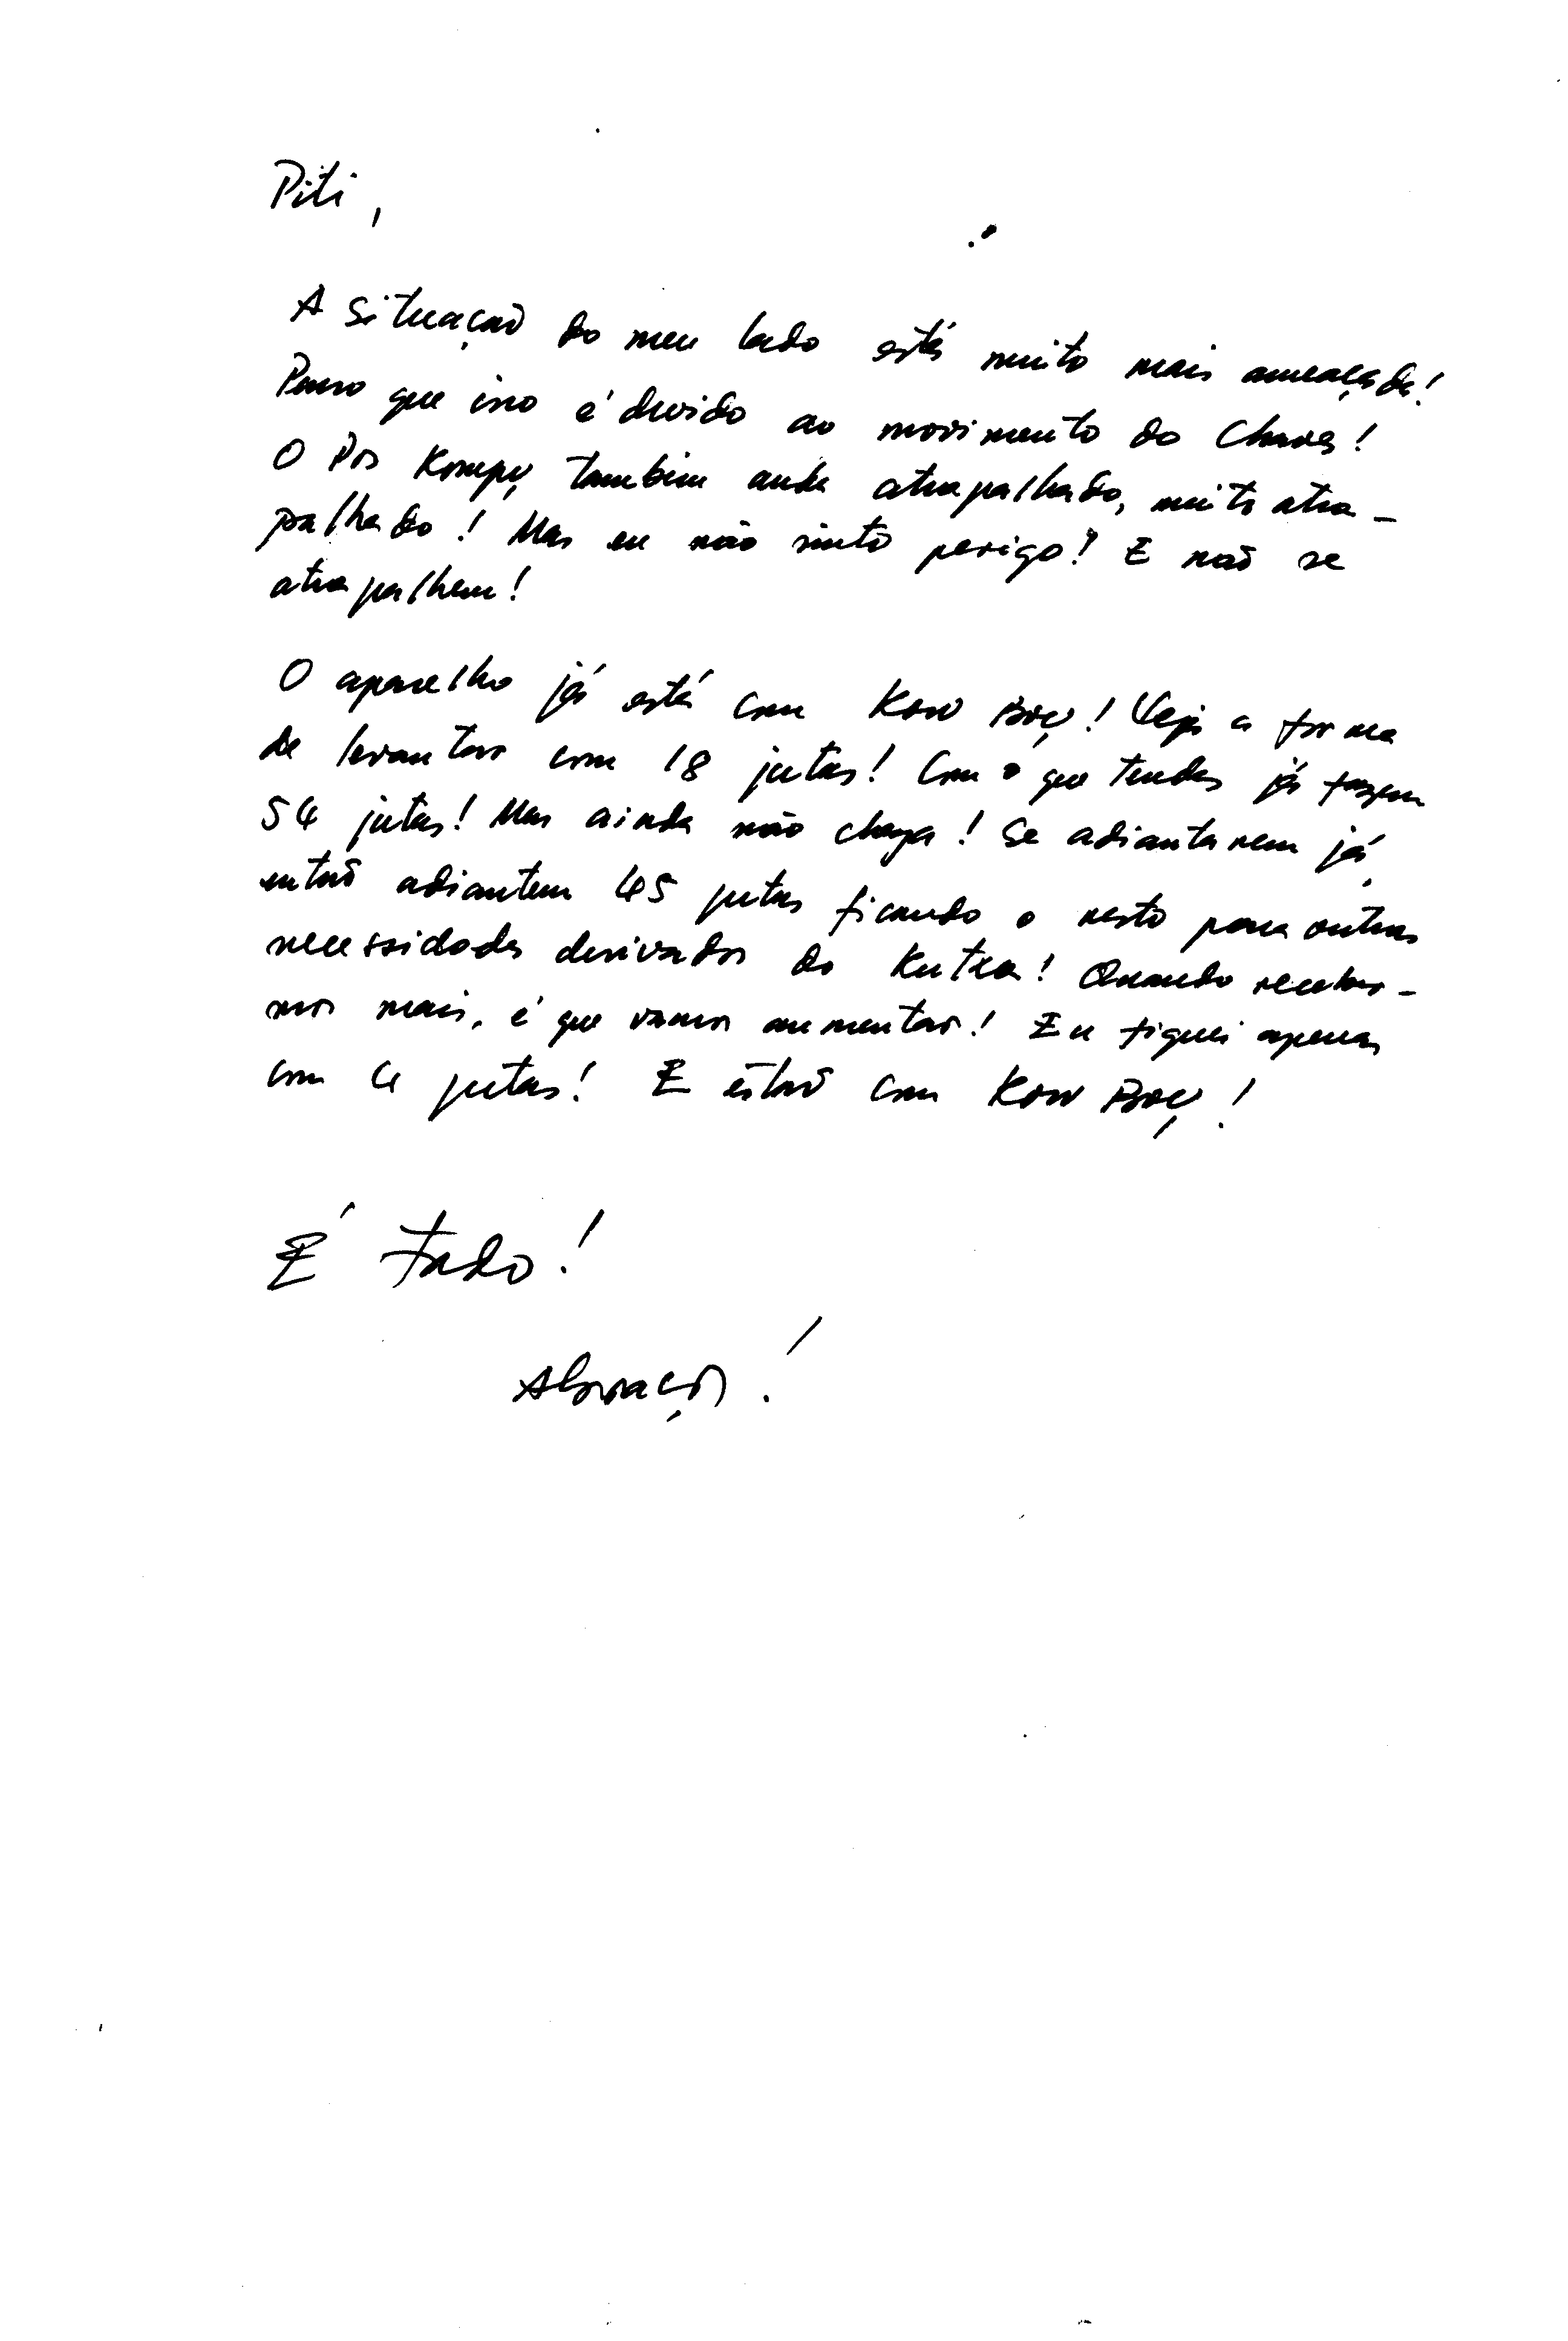 Piti,
A situação do meu lado está muito mais ameaçada!
Penso que isso é devido ao movimento do Chaves!
O Pos também anda atrapalhado, muito atra-
palhado! Mas eu não sinto perigo! E não se
atrapalhem!
O aparelho já está com Kow Boy! Veja a forma
de levantar com 18 jutas! Com o que tendes já fazem
54 jutas! Mas ainda não chega! Se adiantarem já,
então adiantem 45 jutas ficando o resto para outras
necessidades derivados do Kutxa! Quando receber-
mos mais, é que vamos aumentar! Eu fiquei apenas
com 4 jutas! E estão com Kow Boy!
É Fado!
Abraços!